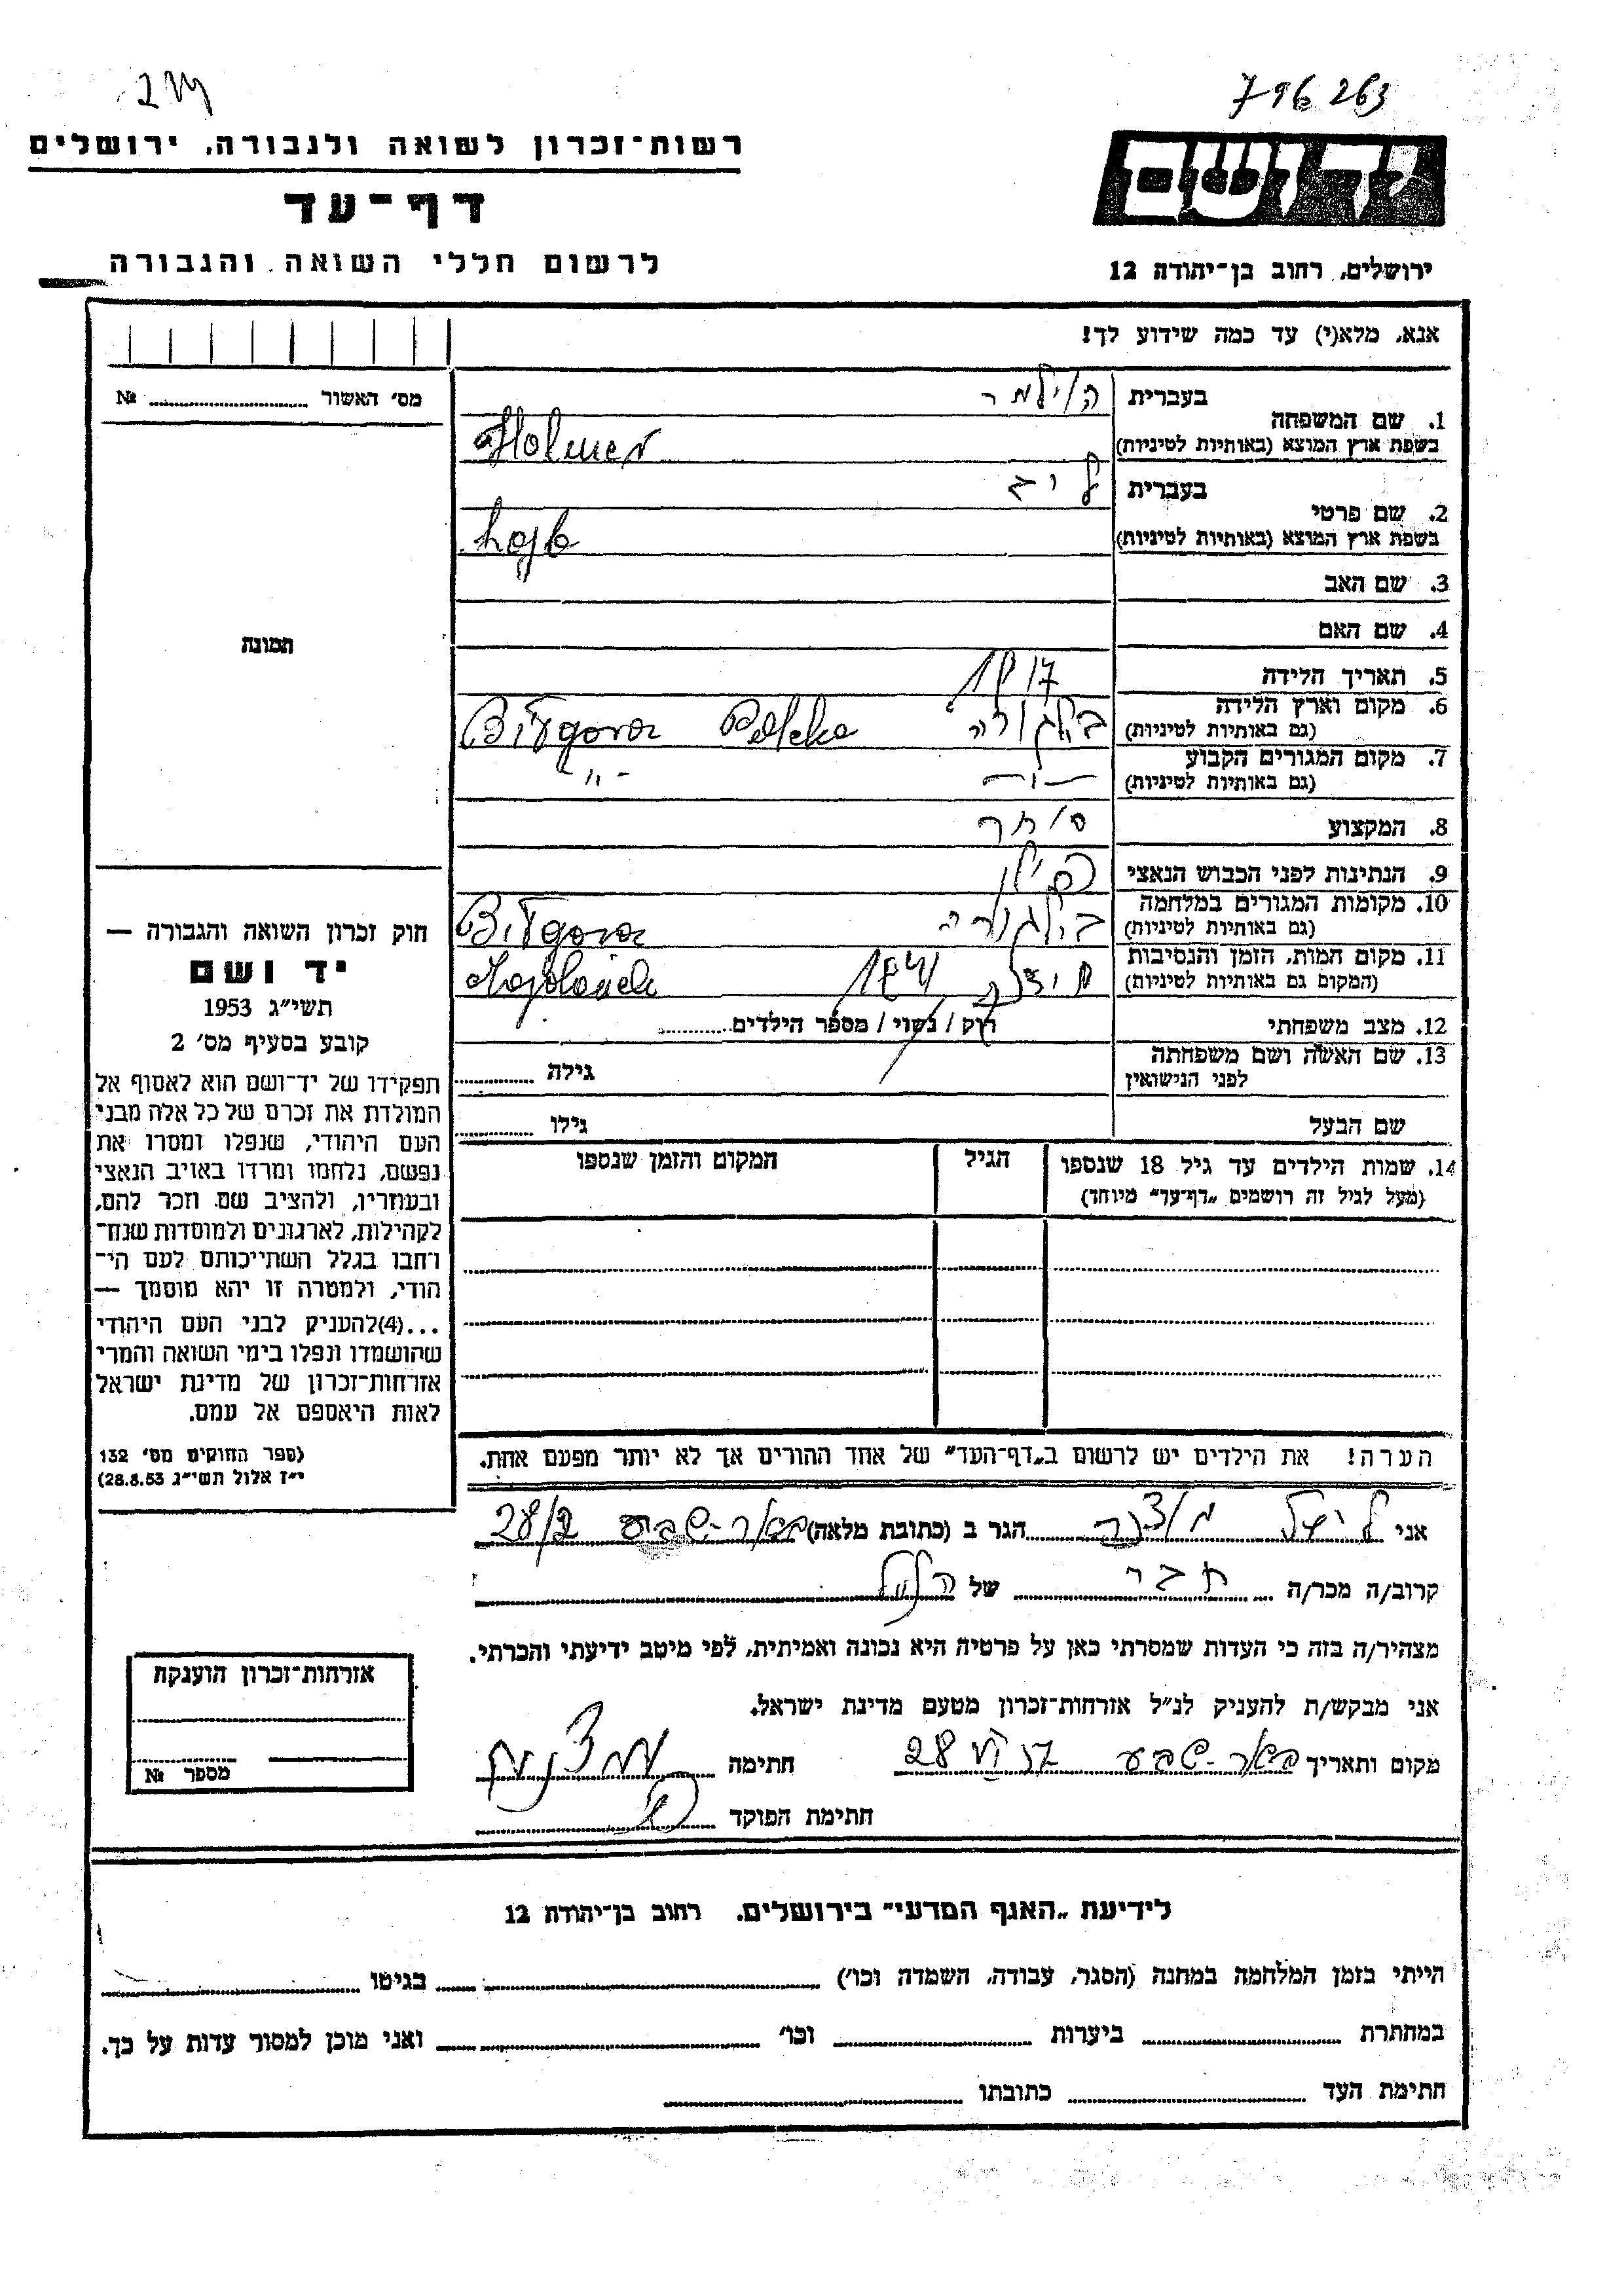 796263
רשות-זכרון לשואה ולגבורה, ירושלים
דף-עד
לרשום חללי השואה והגבורה
ידושם
ירושלים, רחוב בן-יהודה 12
אנא, מלא(י) עד כמה שידוע לך!
מס' האשור № ........
תמונה
1. שם המשפחה
בעברית הולמר
בשפת ארץ המוצא (באותיות לטיניות) Holmer
2. שם פרטי
בעברית ליב
בשפת ארץ המוצא (באותיות לטיניות) Lajb
3. שם האב
4. שם האם
5. תאריך הלידה 1917
6. מקום וארץ הלידה
(גם באותיות לטיניות) בילגורה Polska Biłgoraj
7. מקום המגורים הקבוע
(גם באותיות לטיניות) -"- -"-
8. המקצוע סוחר
9. הנתינות לפני הכבוש הנאצי פולין
10. מקומות המגורים במלחמה
(גם באותיות לטיניות) בילגורה Biłgoraj
11. מקום המות, הזמן והנסיבות
(המקום גם באותיות לטיניות) 194 Majdanek
12. מצב משפחתי רווק / נשוי / מספר הילדים........
13. שם האשה ושם משפחתה
לפני הנישואין גילה ........
שם הבעל גילו ........
14. שמות הילדים עד גיל 18 שנספו
(מעל לגיל זה רושמים „דף-עד" מיוחד)
הגיל
המקום והזמן שנספו
חוק זכרון השואה והגבורה —
יד ושם
תשי"ג 1953
קובע בסעיף מס' 2
תפקידו של יד-ושם הוא לאסוף אל
המולדת את זכרם של כל אלה מבני
העם היהודי, שנפלו ומסרו את
נפשם, נלחמו ומרדו באויב הנאצי
ובעוזריו, ולהציב שם וזכר להם,
לקהילות, לארגונים ולמוסדות שנח-
רחבו בגלל השתייכותם לעם הי-
הודי, ולמטרה זו יהא מוסמך —
...(4)להעניק לבני העם היהודי
שהושמדו ונפלו בימי השואה והמרי
אזרחות-זכרון של מדינת ישראל
לאות היאספם אל עמם.
(ספר החוקים מס' 132
י"ז אלול תשי"ג 28.8.53)
הערה! את הילדים יש לרשום ב„דף-העד" של אחד ההורים אך לא יותר מפעם אחת.
אני ........ הגר ב (כתובת מלאה) באר-שבע 28/2
קרוב/ה מכר/ה חבר של הנ"ל
מצהיר/ה בזה כי העדות שמסרתי כאן על פרטיה היא נכונה ואמיתית, לפי מיטב ידיעתי והכרתי.
אני מבקש/ת להעניק לנ"ל אזרחות-זכרון מטעם מדינת ישראל.
מקום ותאריך באר-שבע 28 VI 57 חתימה
חתימת הפוקד
אזרחות-זכרון הוענקה
מספר №
לידיעת „האגף המדעי" בירושלים. רחוב בן-יהודה 12
הייתי בזמן המלחמה במחנה (הסגר, עבודה, השמדה וכו') ........ בגיטו ........
במחתרת ........ ביערות ........ וכו' ........ ואני מוכן למסור עדות על כך.
חתימת העד ........ כתובתו ........